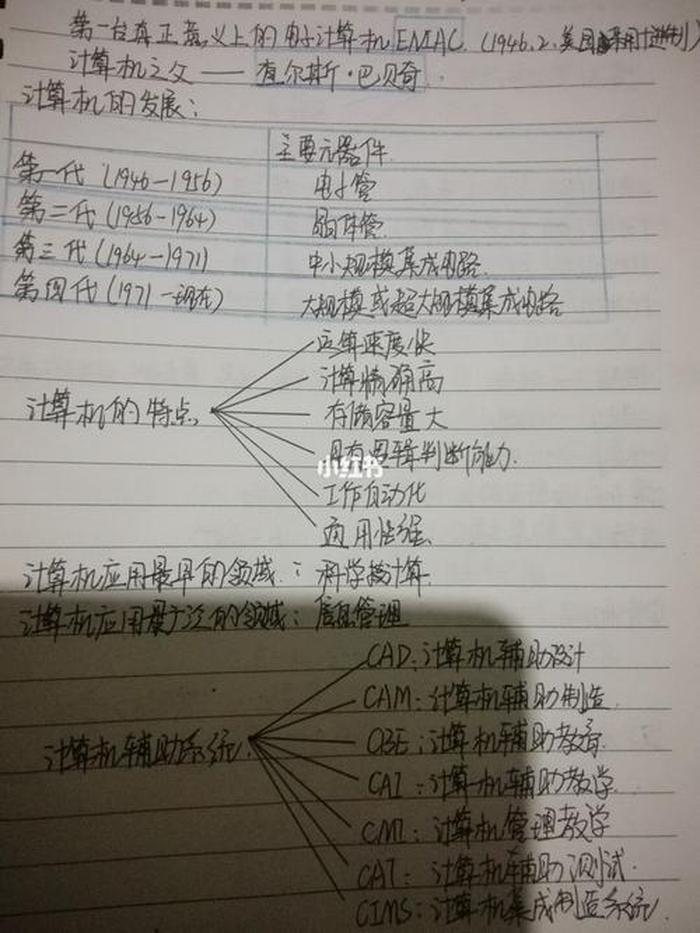 第一台真正意义上的电子计算机ENIAC (1946.2、美国 采用十进制)
计算机之父——查尔斯·巴贝奇
计算机的发展：
主要元器件
第一代 (1946—1956) 电子管
第二代 (1956—1964) 晶体管
第三代 (1964—1971) 中小规模集成电路
第四代 (1971—现在) 大规模或超大规模集成电路
计算机的特点
运算速度快
计算精确高
存储容量大
具有逻辑判断能力
工作自动化
通用性强
小红书
计算机应用最早的领域：科学计算
计算机应用最广泛的领域：信息管理
计算机辅助系统
CAD：计算机辅助设计
CAM：计算机辅助制造
CBE：计算机辅助教育
CAI：计算机辅助教学
CMI：计算机管理教学
CAT：计算机辅助测试
CIMS：计算机集成制造系统